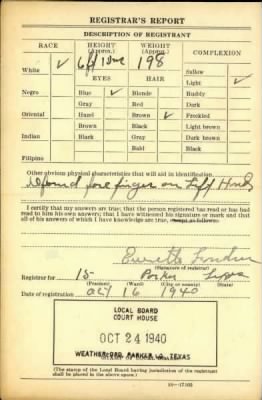 REGISTRAR'S REPORT
DESCRIPTION OF REGISTRANT
RACE HEIGHT (Approx.) WEIGHT (Approx.) COMPLEXION
White ✓ 6 ft 198 Sallow
EYES HAIR Light ✓
Negro Blue ✓ Blonde Ruddy
Gray Red Dark
Oriental Hazel Brown ✓ Freckled
Brown Black Light brown
Indian Black Gray Dark brown
Bald Black
Filipino
Other obvious physical characteristics that will aid in identification
fore finger on Left Hand
I certify that my answers are true; that the person registered has read or has had read to him his own answers; that I have witnessed his signature or mark and that all of his answers of which I have knowledge are true, except as follows:
Everette
(Signature of registrar)
Registrar for 15 Parker
(Precinct) (Ward) (City or county) (State)
Date of registration Oct 16 1940
LOCAL BOARD
COURT HOUSE
OCT 24 1940
WEATHERFORD, PARKER CO. TEXAS
(STAMP OF LOCAL BOARD)
(The stamp of the Local Board having jurisdiction of the registrant shall be placed in the above space.)